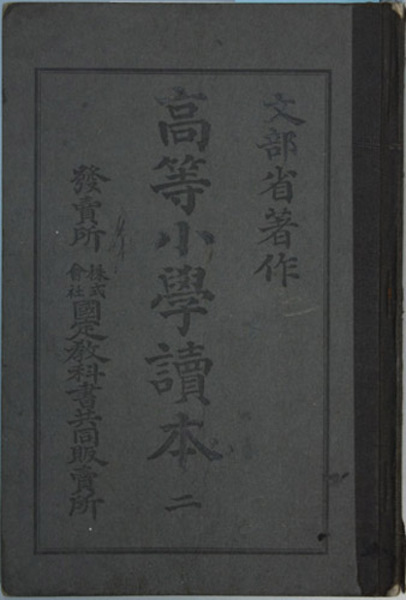 文部省著作
高等小學讀本 二
發賣所 株式會社 國定教科書共同販賣所